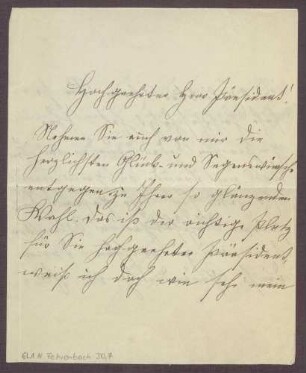 Hochgeehrter Herr Präsident!
Nehmen Sie auch von mir die
herzlichsten Glück- und Segenswünsche
entgegen zu Ihrer so glänzenden
Wahl. Das ist der richtige Platz
für Sie hochgeehrter Präsident,
weiß ich doch wie sehr mein
GLA N Fehrenbach